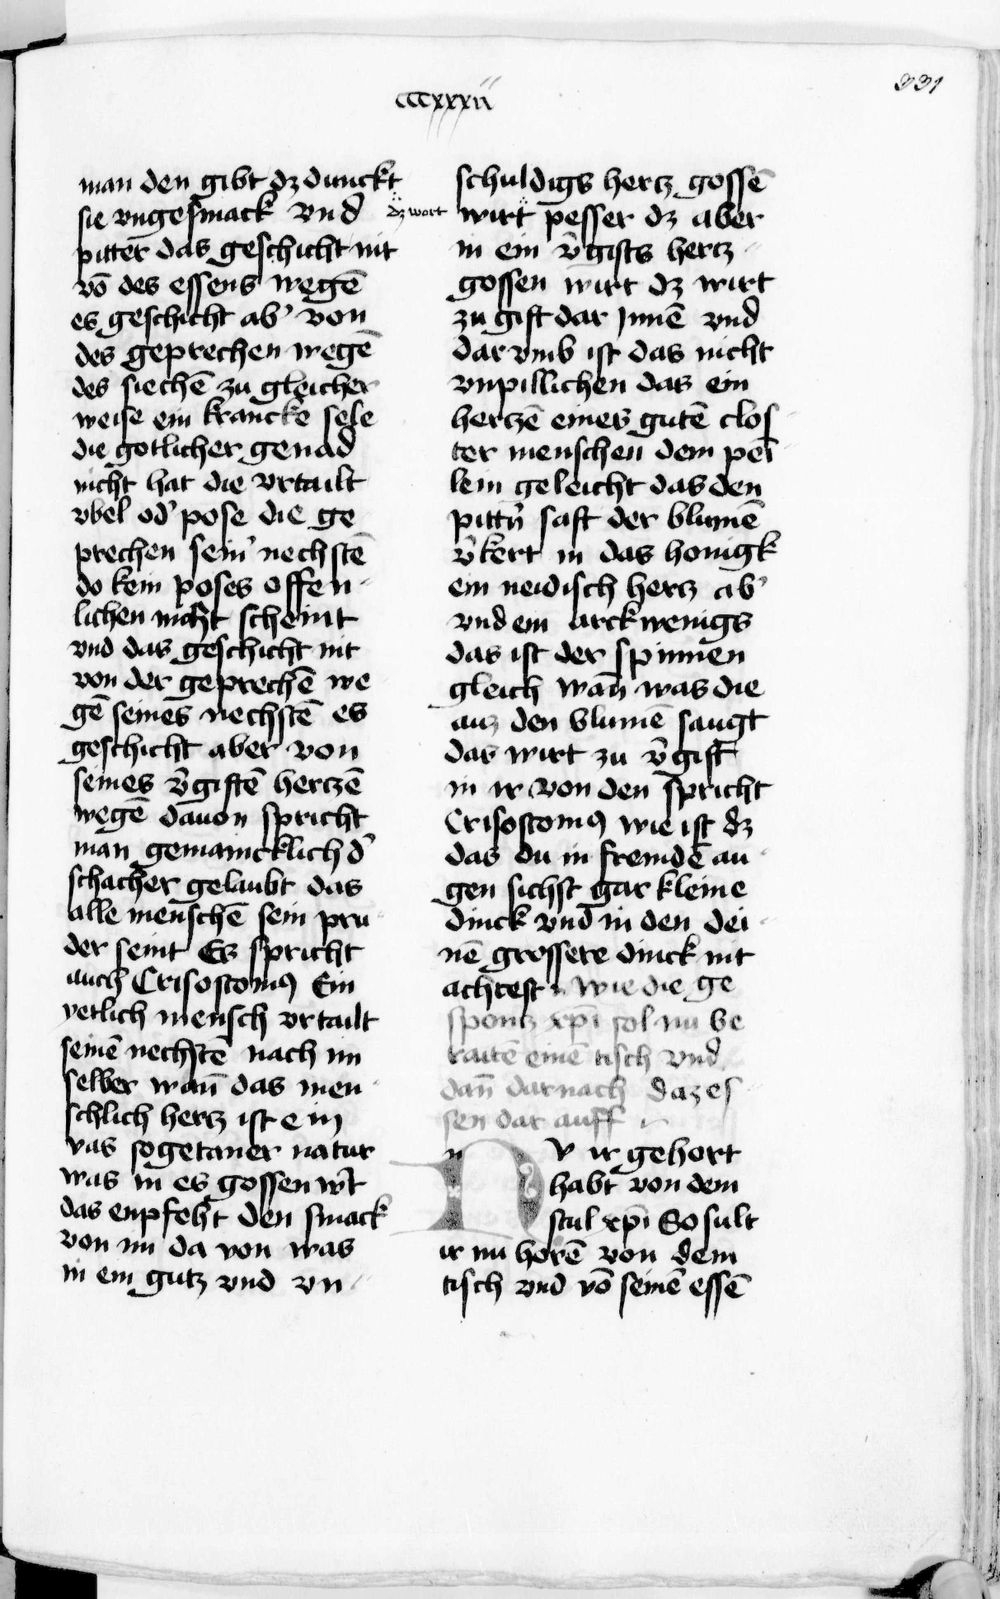 331
cccxxxii
man den gibt dz dunckt
sie vngesmack vnd
pitter das geschicht nit
vō des essens wegē
es geschicht ab’ von
des geprechen wegē
des siechē zu gleicher
weise ein krancke sele
die gotlicher genad
nicht hat die vrtailt
vbel od’ pose die ge
prechen sein’ nechstē
do kein poses offen-
lichen nicht scheint
vnd das geschicht nit
von der geprechē we
gē seines nechstē es
geschicht aber von
seines v̄giftē hertzē
wegē dauon spricht
man gemaincklich d’
schacher gelaubt das
alle menschē sein pru
der seint Ez spricht
auch Crisostomꝯ Ein
yetlich mensch vrtailt
seinē nechstē nach im
selber wan̄ das men-
schlich hertz ist ein
vas sogetaner natur
was in es gossen w’t
das enpfeht den smack
von im da von was
in ein gutz vnd vn-
schuldigs hertz gossē
dz wort
wirt pesser dz aber
in ein v̄gifts hertz
gossen wirt dz wirt
zu gift dar Jnnē vnd
dar vmb ist das nicht
vnpillichen das ein
hertzē eines gutē clos-
ter menschen dem pei-
lein geleicht das den
pittn̄ saft der blumē
v̄kert in das honigk
ein neidisch hertz ab’
vnd ein arckwenigs
das ist der spinnen
gleich wan̄ was die
auz den blumē saugt
das wirt zu v̄gift
in ir von den spricht
Crisostomꝯ wie ist dz
das du in fremdē au-
gen sichst gar kleine
dinck vnd in den dei-
nē grossere dinck nit
achtest Wie die ge
spontz xp̄i sol nu be
raitē einē tisch vnd
dan̄ darnach daz es
sen dar auff
Nv ir gehort
habt von dem
stul xp̄i So sult
ir nu horē von dem
tisch vnd vō seinē essē